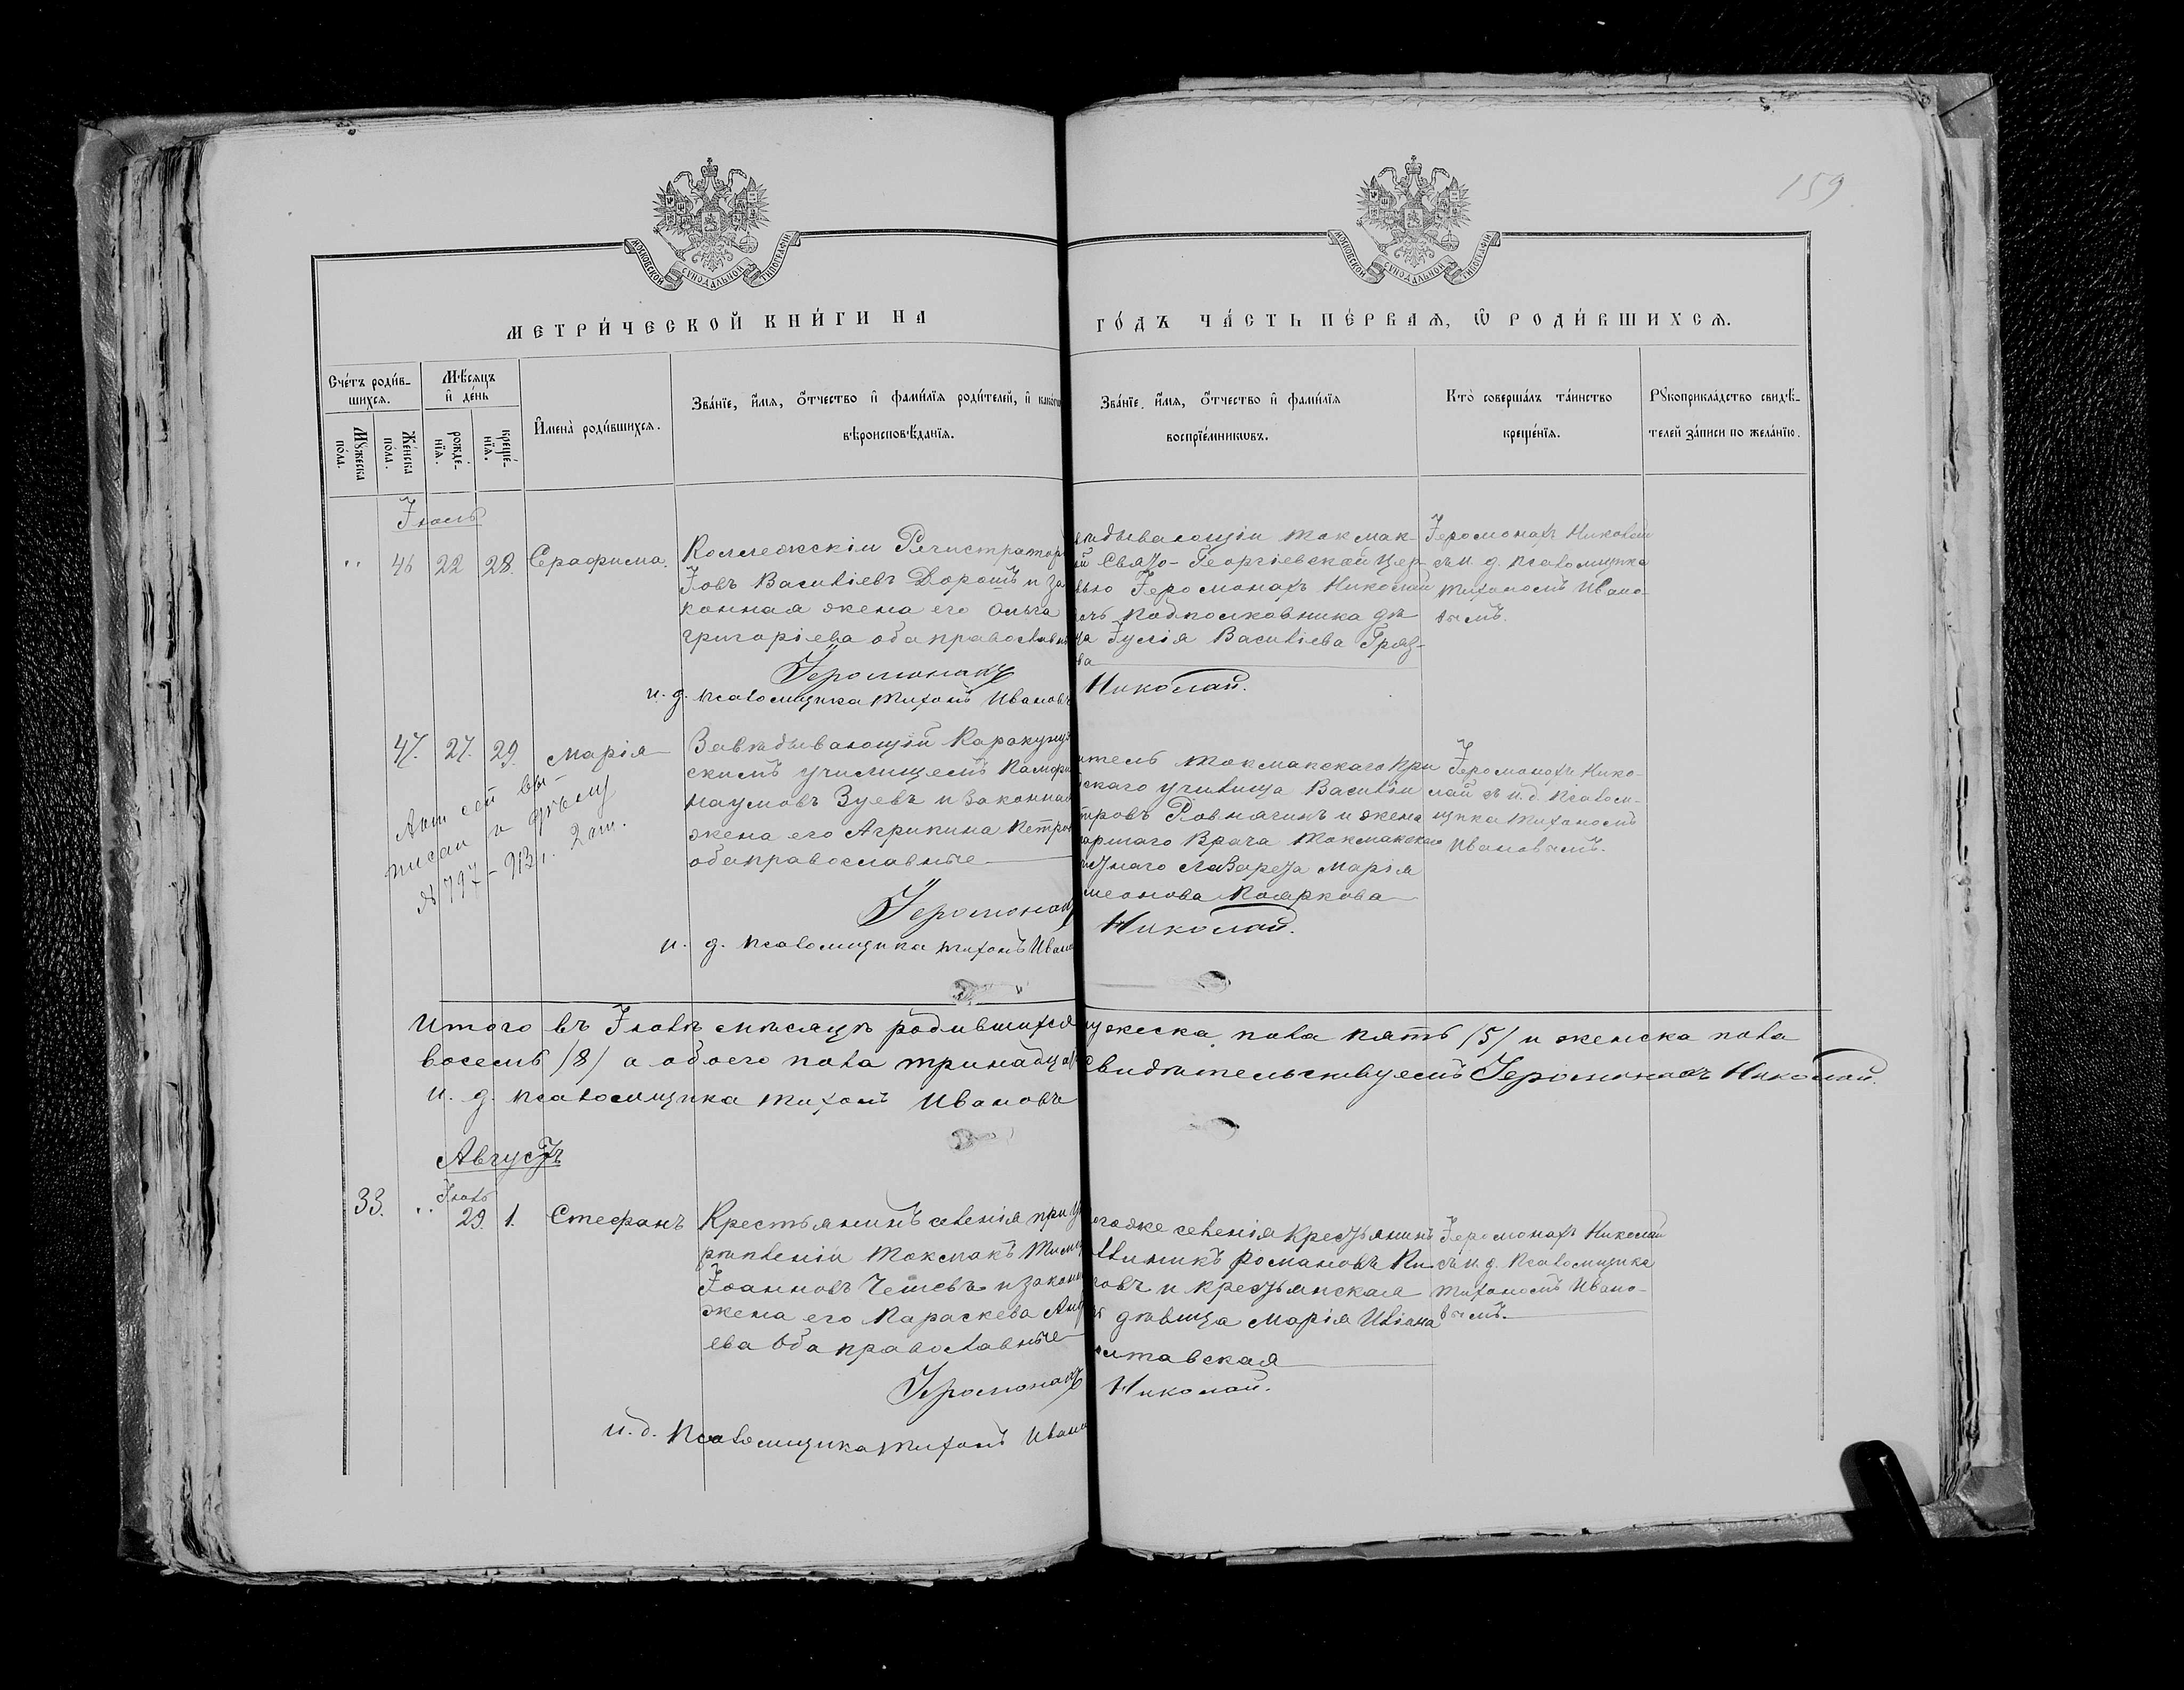 159
МОСКОВСКОЙ СѴНОДАЛЬНОЙ ТИПОГРАФІИ
МОСКОВСКОЙ СѴНОДАЛЬНОЙ ТИПОГРАФІИ
МЕТРИ́ЧЕСКОЙ КНИ́ГИ НА
ГО́ДЪ ЧА́СТЬ ПЕ́РВАѦ, Ѡ҆ РОДИ́ВШИХСѦ.
Сче́тъ роди́в-
шихсѧ.
Мꙋ́жеска
по́ла.
Же́нска
по́ла.
Мѣ́сѧцъ
и҆ де́нь
рожде́-
нїѧ.
креще́-
нїѧ.
И҆мена̀ роди́вшихсѧ.
Зва́нїе, и҆́мѧ, ѻ҆́тчество и҆ фами́лїѧ роди́телей, и҆
вѣроисповѣ́данїѧ.
Зва́нїе, и҆́мѧ, ѻ҆́тчество и҆ фами́лїѧ
воспрїе́мникѡвъ.
Кто̀ соверша́лъ та́инство
креще́нїѧ.
Рꙋкоприкла́дство свидѣ́-
телей за́писи по жела́нїю.
Іюль
46 22 28. Серафима.
Коллежскій Регистраторъ
Іовъ Василіевъ Дорошъ и за
конная жена его Ольга
Григоріева оба православн
Іеромонахъ
и. д. псаломщика Тихонъ Ивановъ
ѣдывающій Токмак-
й Свято-Георгіевской Цер-
вью Іеромонахъ Николай
Подполковника дѣ
ца Іулія Василіева Гряз-
ва
Николай.
Іеромонахъ Николай
съ и. д. псаломщика
Тихономъ Ивано-
вымъ.
47. 27. 29. Марія
Завѣдывающій Каракунуз
скимъ училищемъ
Наумовъ Зуевъ и законная
жена его Агрипина Петро
оба православные
Іеромонахъ
и. д. псаломщика Тихонъ Ивано
Акт сей вы-
писан
№ 797 - 913 г.
итель Токмакскаго При
скаго училища Василій
тровъ Ровнягинъ и жена
аршаго Врача Токмакскаго
Лазарета Марія
меонова Пояркова
Николай.
Іеромонахъ Нико-
лай съ и. д. Псалом-
щика Тихономъ
Ивановымъ.
Итого въ Іюлѣ мѣсяцѣ родившихся ужеска пола пять /5/ и женска пола
восемь /8/ а обоего пола тринадца Свидѣтельствуемъ Іеромонахъ Николай.
и. д. псаломщика Тихонъ Ивановъ
Августъ
Іюль
33. 29. 1. Стефанъ
Крестьянинъ селенія при у
рочищѣ Токмакъ
Іоанновъ Чешевъ и законн
жена его Параскева Анд
ева оба православные
Іеромонахъ
и. д. Псаломщика Тихонъ Ивано
огоже селенія Крестьянинъ
Романовъ
овъ и крестьянская
дѣвица Марія
лтавская
Николай.
Іеромонахъ Николай
съ и. д. Псаломщика
Тихономъ Ивано-
вымъ.